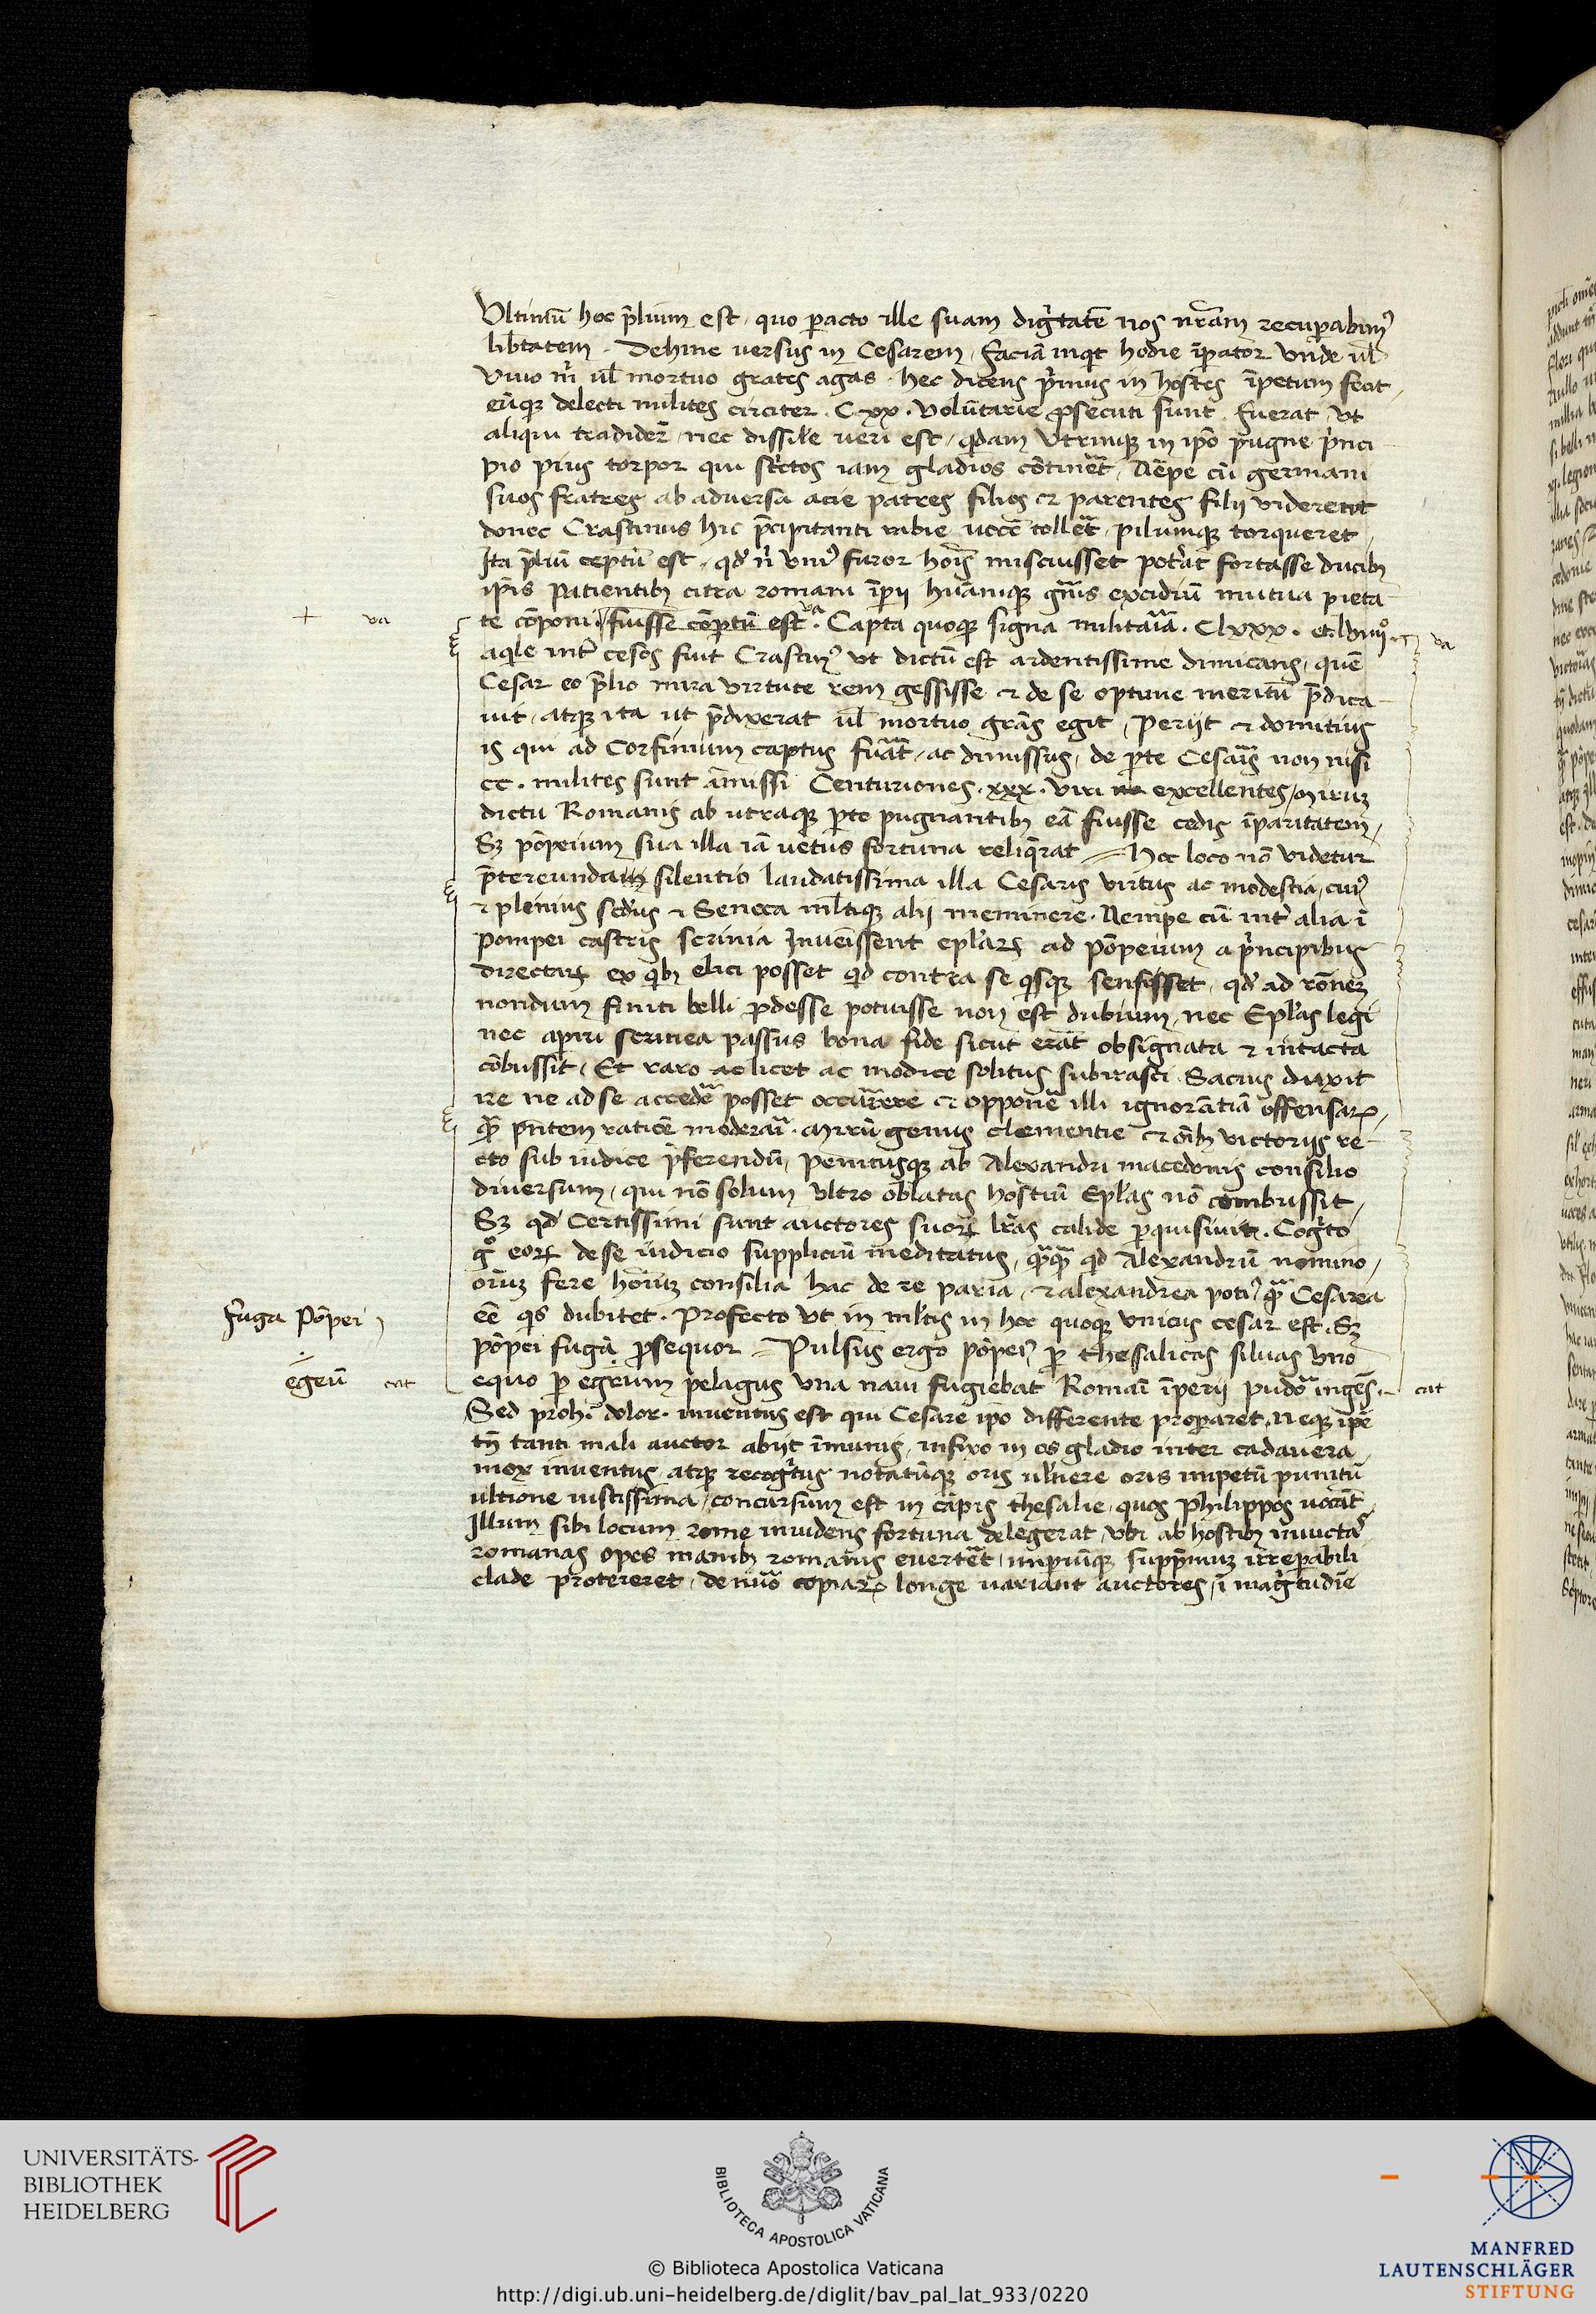 Vltimũ hoc p̃lium est quo ꝑacto ille suam dig̃tatẽ nos nr̃am recupabim⁹
lib̃tatem. Dehinc uersus in Cesarem, faciã inq̃t hodie ĩpator vnde ul̃
viuo m̃ ul̃ mortuo grates agas. hec dicens p̃mus in hostes ĩpetum fecit,
eũqꝫ delecti milites circiter. C.xx. volũtarie ꝓsecuti sunt. fuerat vt
aliqui tradider̃ nec dissil̃e ueri est, q̃dam vtrinqꝫ in ip̃o pugne p̃nci
pio pius torpor qui st̃ctos iam gladios cõtiner̃et, Nẽpe cũ germani
suos fratres ab aduersa acie patres filios ⁊ parentes filij viderent
donec Crastinus hic p̃cipitanti rabie uocẽ toller̃et, pilumqꝫ torqueret,
Ita p̃liũ ceptũ est, qd̃ ñ vni⁹ furor hoĩs miscuisset pot̃at fortasse ducibꝫ
ip̃is patientibꝫ citra romani ĩpij hũaniqꝫ gñis excidiũ mutua pieta
te cõponi. fuisse cõptũ est. Capta quoqꝫ signa militaia. Clxxx. et
aq̃le int̃ cesos fuit Crastin⁹ vt dictũ est ardentissime dimicans, quẽ
Cesar eo p̃lio mira virtute rem gessisse ⁊ de se optime meritũ p̃dica
uit, atqꝫ ita ut p̃dixerat ul̃ mortuo grãs egit, Perijt ⁊ domitius
is qui ad Corfinium captus fũat, ac dimissus, de ꝑte Cesaris non nisi
cc. milites sunt amissi Centuriones. xxx. viri excellentes, Mirũ
dictu Romanis ab utraqꝫ ꝑte pugnantibꝫ eã fuisse cedis ĩparitatem,
Sꝫ põpeium sua illa iã uetus fortuna reliq̃rat = Hoc loco nõ videtur
p̃tereundam silentio laudatissima illa Cesaris virtus ac modestia, cui⁹
⁊ plenius scd̃us ⁊ Seneca ml̃tiqꝫ alij meminere. Nempe cũ int̃ alia ĩ
pompei castris scrinia Inueissent epl̃aꝝ ad põpeium a p̃ncipibus
directaꝝ ex q̃bꝫ elici posset q̃d contra se q̃sqꝫ sensisset, qd̃ ad rõnem
nondum finiti belli ꝓdesse potuisse non est dubium, nec Epl̃as legi
nec apiri scrinea passus bona fide sicut erãt obsignata ⁊ intacta
cõbussit, Et raro ac licet ac modice solitus subirasci. Sacius duxit
ire ne ad se acceder̃e posset occurrere ⁊ opponer̃e illi ignorãtiã offensaꝝ,
q̃ p̃ntem raticẽ moderari. Mirũ genus clementie ⁊ oĩbꝫ victorijs re
cto sub iudice p̃ferendũ, penitusqꝫ ab Alexandri macedonis consilio
diuersum, qui nõ solum vltro oblatas hostiũ Epl̃as nõ combussit,
Sꝫ qd̃ Certissimi sunt auctores suoꝝ lr̃as calide ꝑquisiuit. Cog̃to
g° eoꝝ de se iudicio suppliciũ meditatus, q̃q̃ q̃d Alexandrũ nomino,
oĩm fere hoĩm consilia hac de re paria, ⁊ alexandrea poti⁹ q̃ Cesarea
eẽ q̃s dubitet. Profecto vt in ml̃tis in hoc quoqꝫ vnicus cesar est. Sꝫ
põpei fugã ꝓsequor = Pulsus ergo põpei⁹ ꝑ thesalicas siluas vno
equo ꝑ egeum pelagus vna naui fugiebat Romai ĩperij pudor ingẽs.
Sed proh. dolor. inuentus est qui Cesare ip̃o differente properaret. Neqꝫ ip̃e
tñ tanti mali auctor abijt ĩmunis, infixo in os gladio inter cadauera
mox inuentus, atqꝫ recog̃tus notatũqꝫ oris ul̃nere oris impetũ punitũ
ultione iustissima, concursum est in cãpis thesalie, quos Philippos uocãt
Illum sibi locum rome inuidens fortuna delegerat, vbi ab hostibꝫ inuictas
romanas opes manibꝫ romanis euerter̃et, impiũqꝫ supp̃mum irrepabili
clade protereret, de nũo copiaꝝ longe uariant auctores, ĩ mag̃tudĩe
+ va
va
Fuga Põpei
egeũ cat
cat
UNIVERSITÄTS-
BIBLIOTHEK
HEIDELBERG
BIBLIOTECA APOSTOLICA VATICANA
© Biblioteca Apostolica Vaticana
http://digi.ub.uni-heidelberg.de/diglit/bav_pal_lat_933/0220
MANFRED
LAUTENSCHLÄGER
STIFTUNG